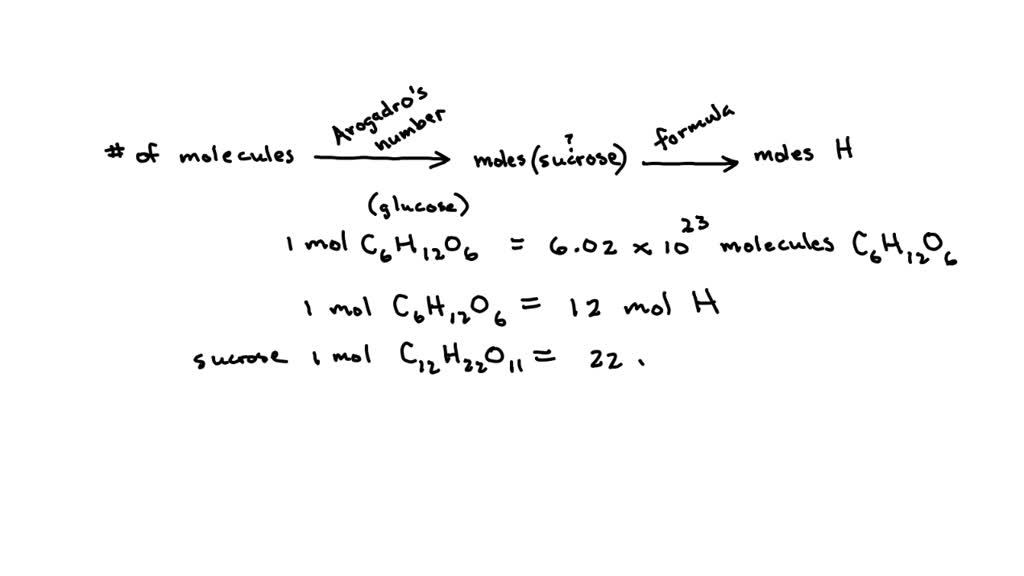 # of molecules Arogadro's number moles (sucrose) ? formula moles H
(glucose)
1 mol C₆H₁₂O₆ = 6.02 × 10²³ molecules C₆H₁₂O₆
1 mol C₆H₁₂O₆ = 12 mol H
sucrose 1 mol C₁₂H₂₂O₁₁ = 22 .